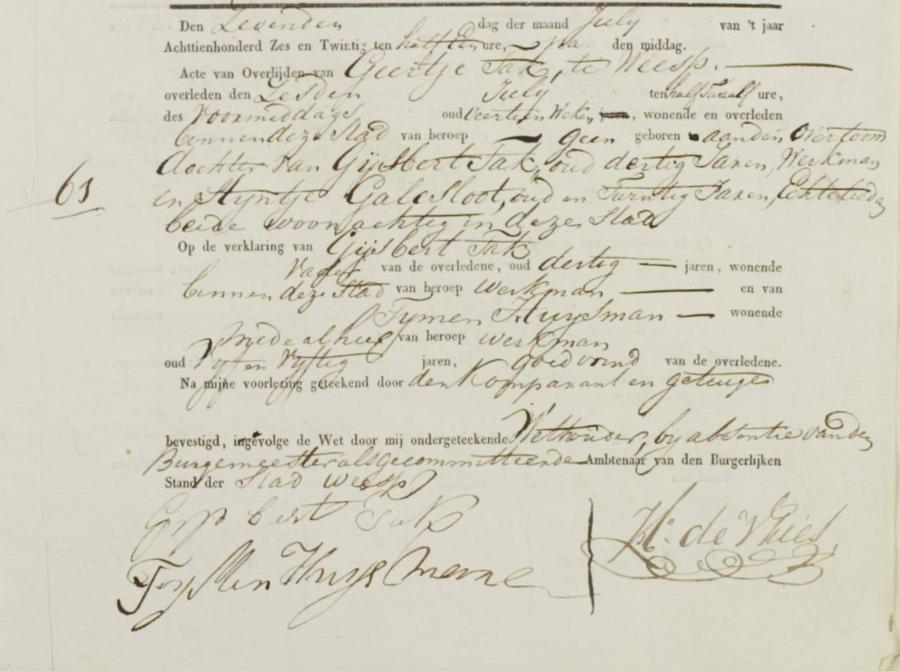 Den Zevenden dag der maand July van 't jaar
Achttienhonderd Zes en Twintig ten half Een ure, na den middag.
Acte van Overlijden van Geertje Tak, te Weesp.
overleden den Zesden July ten half Twaalf ure,
des Voormiddags oud Veertien Weken, wonende en overleden
binnen deze Stad van beroep geen geboren aan den Overtoom
dochter van Gijsbert Tak, oud dertig Jaren, Werkman
61
en Styntje Galesloot, oud en Twintig Jaren, Echtelieden
beide woonachtig in deze Stad
Op de verklaring van Gijsbert Tak
Vader van de overledene, oud dertig jaren, wonende
binnen deze Stad van beroep werkman en van
Tymen Huysman wonende
mede alhier van beroep werkman
oud Vyf en Vyftig jaren, goed vrind van de overledene.
Na mijne voorlezing geteekend door den Komparant en getuige
bevestigd, ingevolge de Wet door mij ondergeteekende Wethouder, by absentie van den
Burgemeester als gecommitteerde Ambtenaar van den Burgerlijken
Stand der Stad Weesp
Gijsbert Tak
H. de Vries
Huysmane